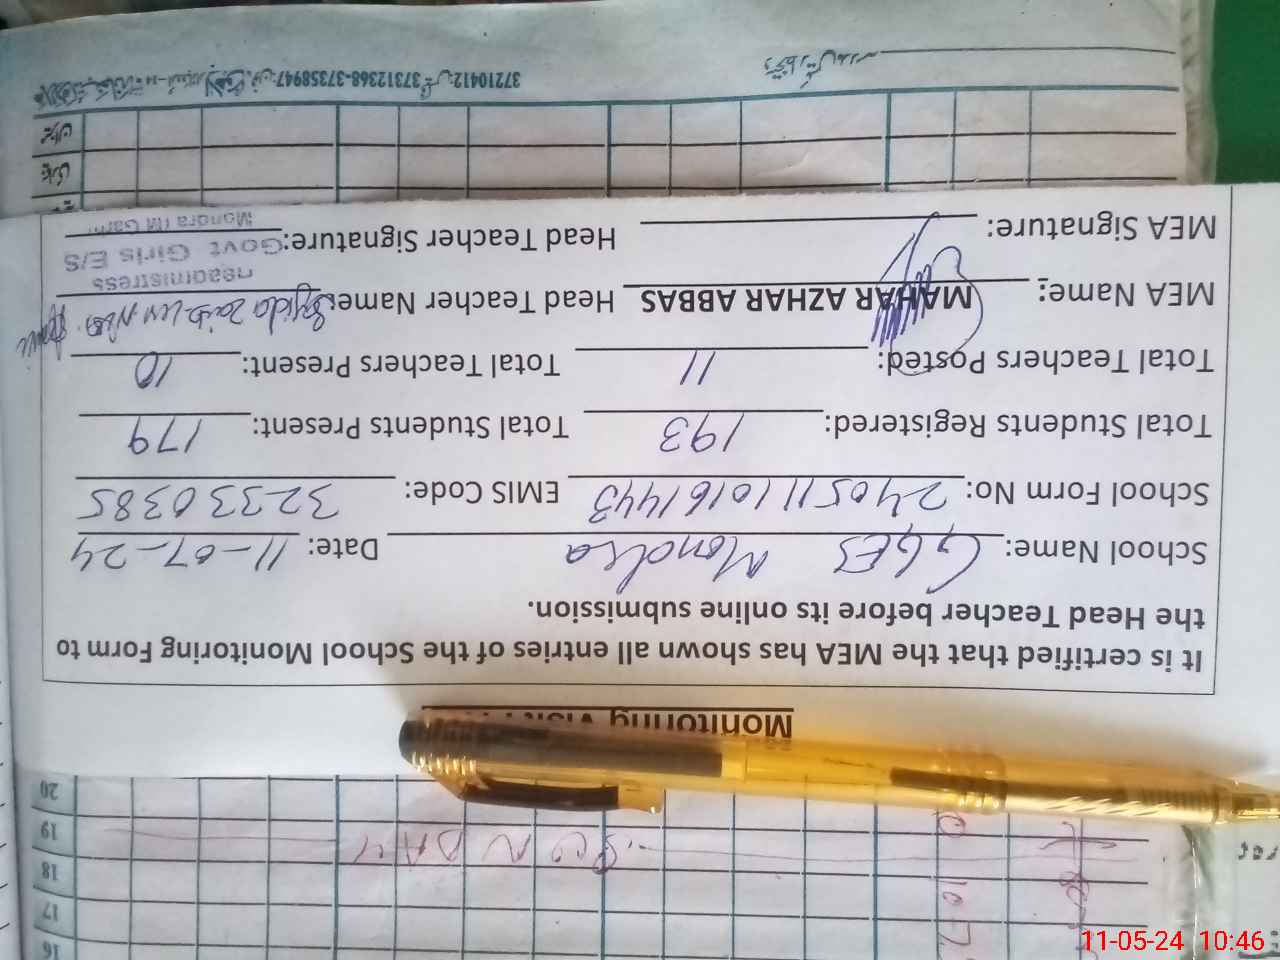 16
17
18
19 SUNDAY
20
Monitoring Visit
It is certified that the MEA has shown all entries of the School Monitoring Form to
the Head Teacher before its online submission.
School Name: GGES Mondra Date: 11-05-24
School Form No: 24051110161443 EMIS Code: 32330385
Total Students Registered: 193 Total Students Present: 179
Total Teachers Posted: 11 Total Teachers Present: 10
MEA Name: MAHAR AZHAR ABBAS Head Teacher Name: Sajida
Headmistress
MEA Signature: Head Teacher Signature: Govt Girls E/S
Mondra
37210412 37312368-37358947
11-05-24 10:46